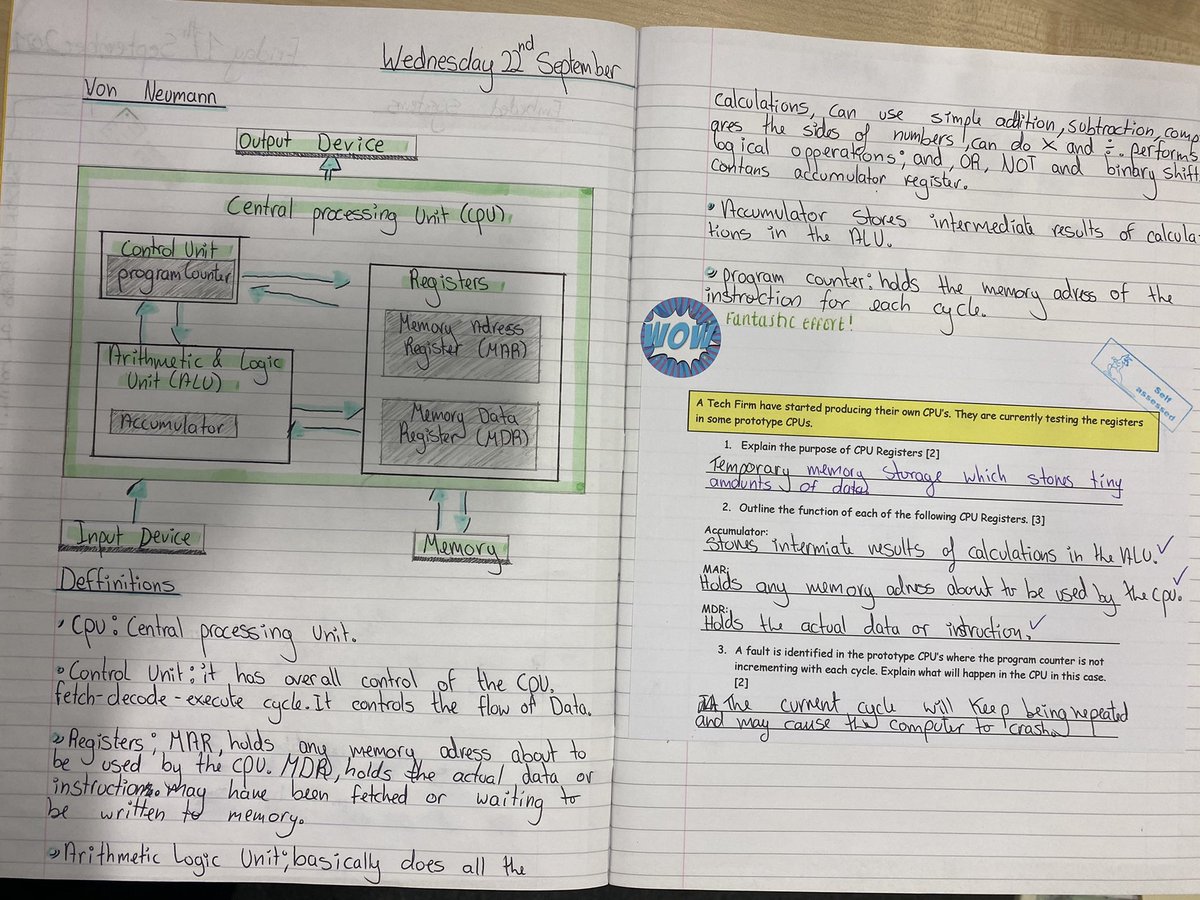 Wednesday 22nd September
Von Neumann
Output Device
Central processing Unit (CPU)
Control Unit
program Counter
Registers
Memory Adress
Register (MAR)
Arithmetic & Logic
Unit (ALU)
Accumulator
Memory Data
Register (MDR)
Input Device
Memory
Deffinitions
• CPU: Central processing Unit.
• Control Unit: it has overall control of the CPU.
fetch-decode-execute cycle. It controls the flow of Data.
• Registers; MAR, holds any memory adress about to
be used by the CPU. MDR, holds the actual data or
instructions. may have been fetched or waiting to
be written to memory.
• Arithmetic Logic Unit; basically does all the
calculations, can use simple addition, subtraction, comp
ares the sides of numbers, can do × and ÷. performs
logical opperations; and, OR, NOT and binary shift
contans accumulator register.
• Accumulator stores intermediate results of calcula-
tions in the ALU.
• program counter: holds the memory adress of the
instruction for each cycle.
WOW
Fantastic effort!
Self
assessed
A Tech Firm have started producing their own CPU's. They are currently testing the registers
in some prototype CPUs.
1. Explain the purpose of CPU Registers [2]
Temporary memory storage which stores tiny
amounts of data
2. Outline the function of each of the following CPU Registers. [3]
Accumulator:
Stores intermiate results of calculations in the ALU.
MAR:
Holds any memory adress about to be used by the CPU.
MDR:
Holds the actual data or instruction.
3. A fault is identified in the prototype CPU's where the program counter is not
incrementing with each cycle. Explain what will happen in the CPU in this case.
[2]
The current cycle will keep being repeated
and may cause the computer to crash.